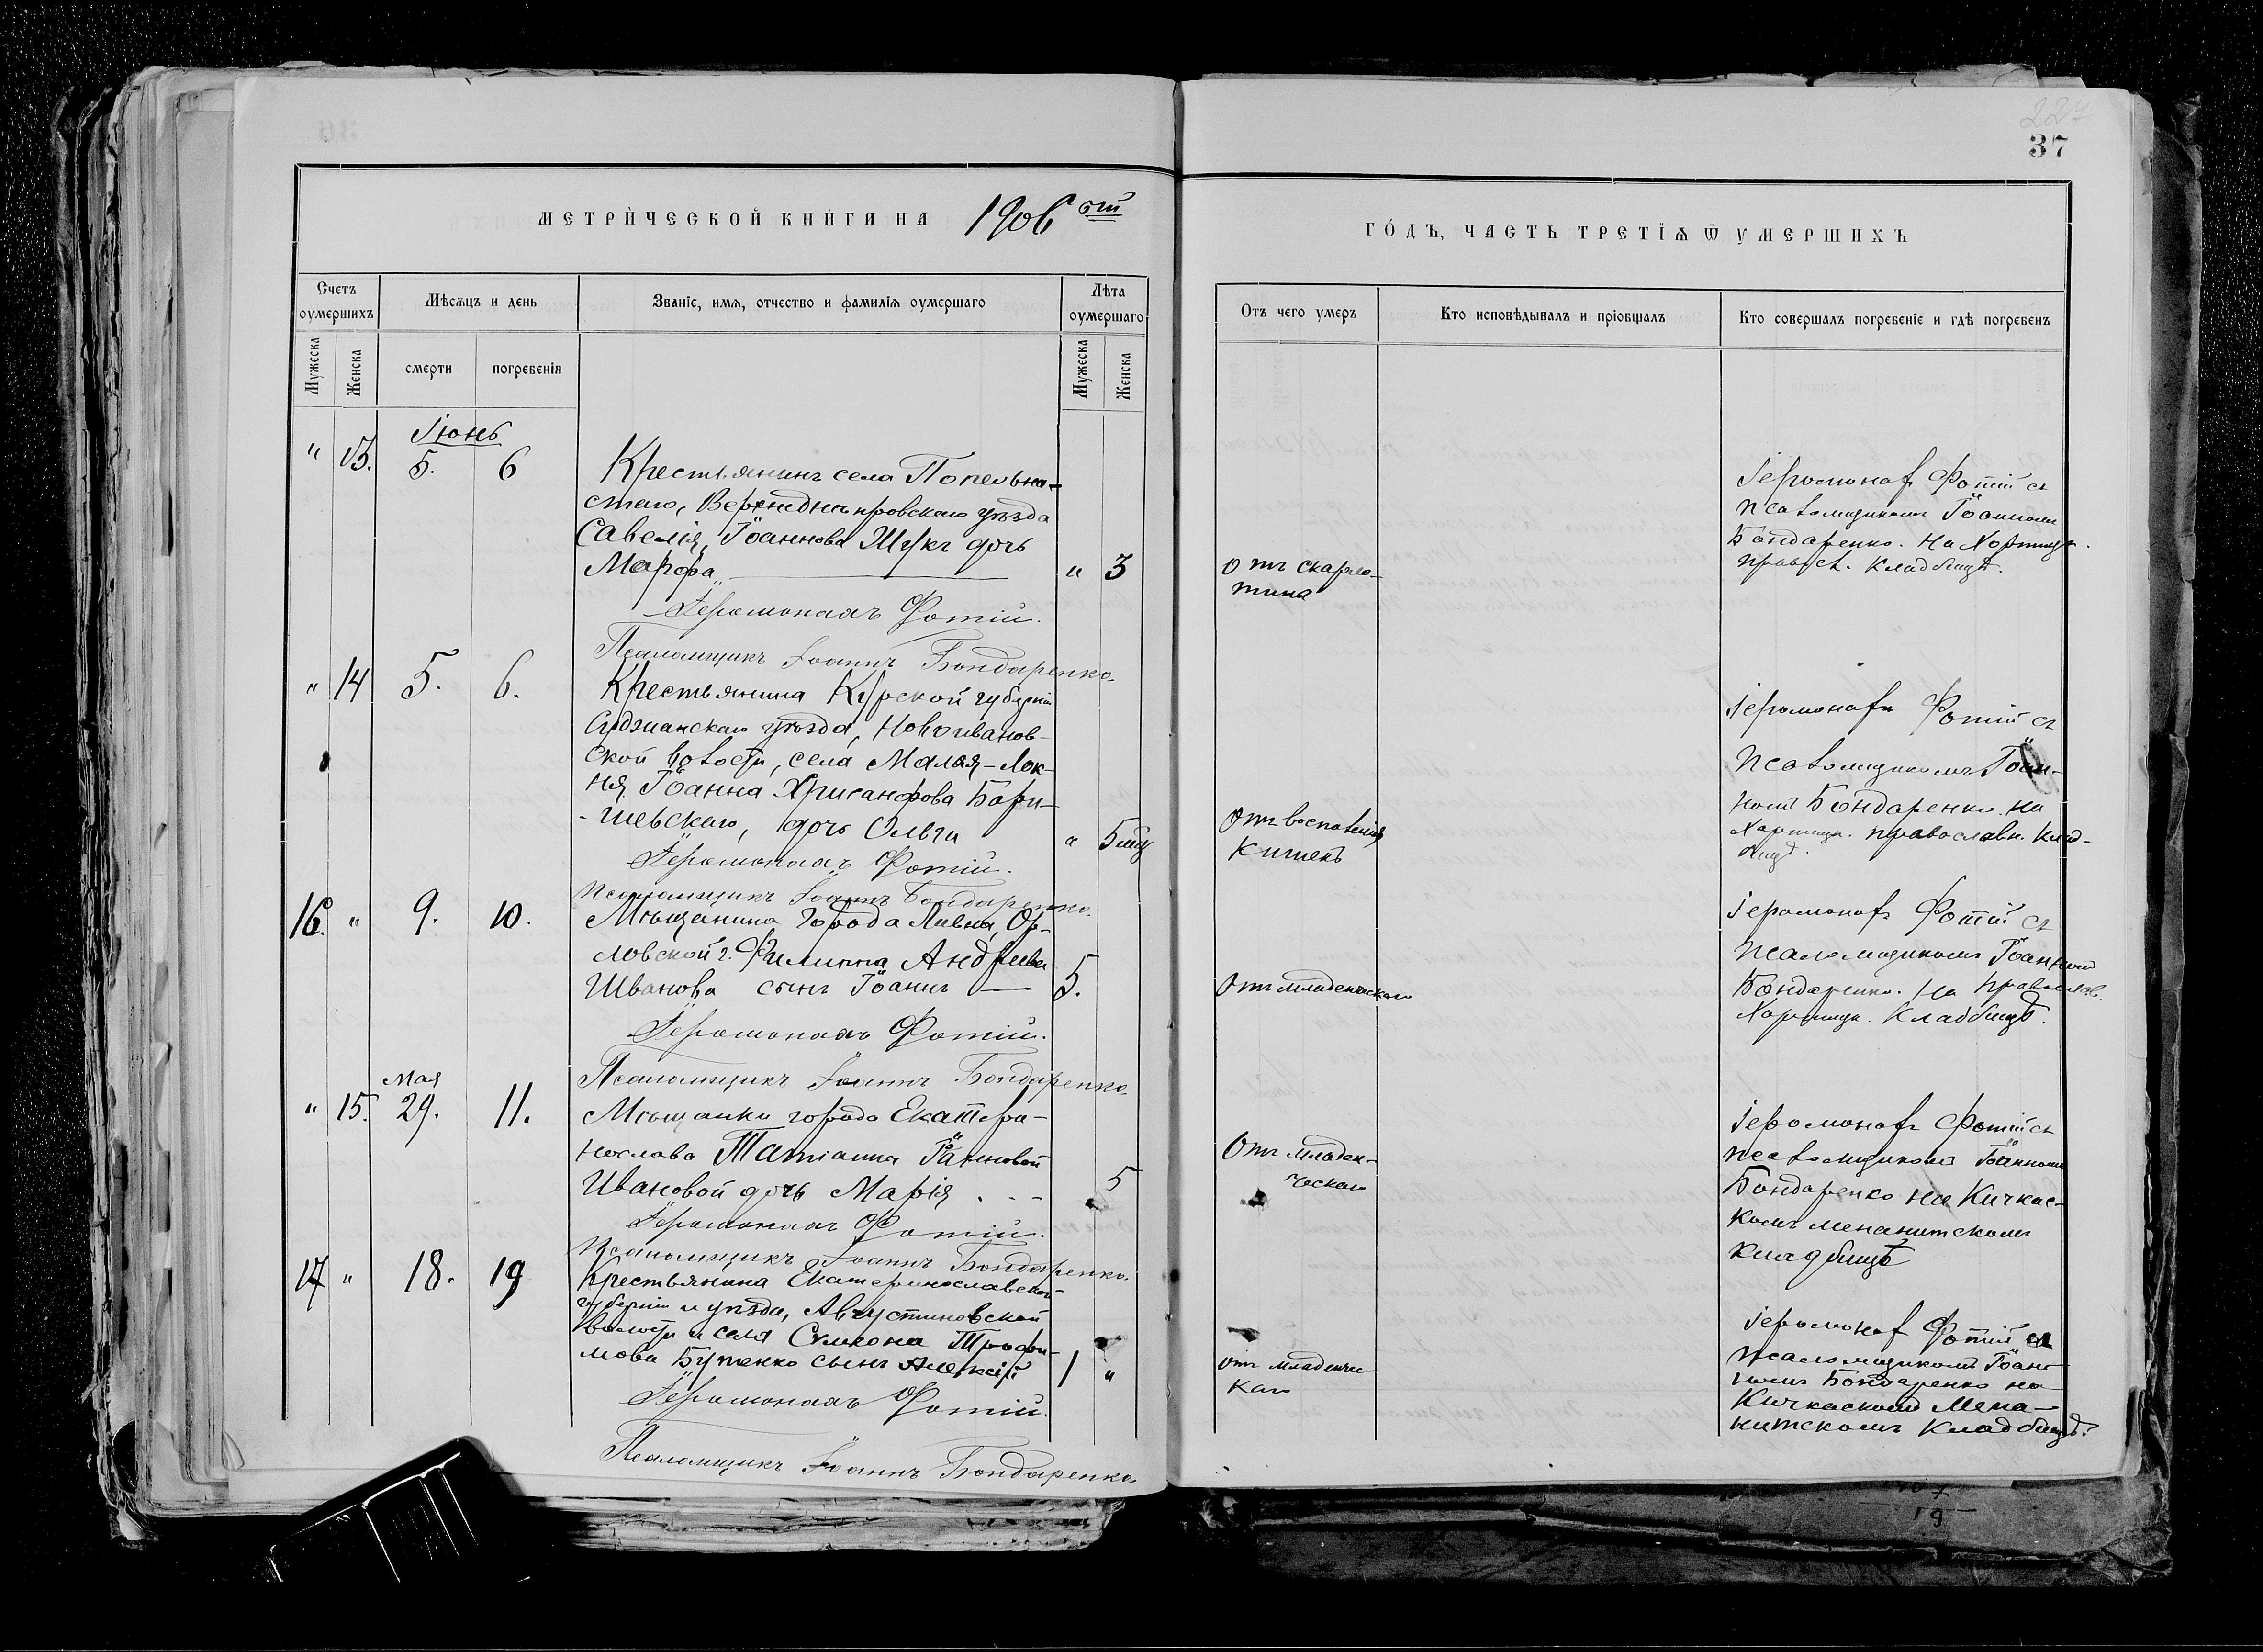 227
37
МЕТРИЧЕСКОЙ КНИГИ НА 1906 ой
ГОДЪ, ЧАСТЬ ТРЕТІѦ Ѿ УМЕРШИХЪ
Счетъ оумершихъ
Мѣсѧцъ и день
Званіе, имѧ, отчество и фамиліѧ оумершаго
Лѣта оумершаго
Мужеска
Женска
смерти
погребенія
Мужеска
Женска
Отъ чего умеръ
Кто исповѣдывалъ и пріобщалъ
Кто совершалъ погребеніе и гдѣ погребенъ
Іюнь
" 13. 5. 6
Крестьянинъ села Попельна-
стаго, Верхнеднѣпровскаго уѣзда
Савелія Іоаннова дочь
Марфа " 3
Іеромонахъ Фотій.
Псаломщикъ Іоаннъ Бондаренко.
отъ скарла-
тина
Іеромонахъ Фотій съ
псаломщикомъ Іоанномъ
Бондаренко. На Хортицк.
правосл. кладбищѣ.
" 14 5. 6.
Крестьянина Курской губерніи
Суджанскаго уѣзда, Новоиванов-
ской волости, села Малая-Лок-
ня Іоанна Хрисанфова Бори-
шевскаго, дочь Ольга
" 5 мѣц
Іеромонахъ Фотій.
Псаломщикъ Іоаннъ Бондаренко.
Отъ воспаленія
кишекъ
Іеромонахъ Фотій съ
псаломщикомъ Іоан-
номъ Бондаренко. на
Хортицк. православн. клад-
бищѣ.
16. " 9. 10.
Мѣщанина города Ливна, Ор-
ловской г. Филиппа Андреева
Иванова сынъ Іоаннъ — 5.
Іеромонахъ Фотій.
Псаломщикъ Іоаннъ Бондаренко.
Отъ младенческаго
Іеромонахъ Фотій съ
псаломщикомъ Іоанномъ
Бондаренко. На правосл.
Хортицк. кладбищѣ.
Мая
" 15. 29. 11.
Мѣщанки города Екатери-
нослава Татіанна Іоанновой
Ивановой дочь Марія . - - 5
Іеромонахъ Фотій.
Псаломщикъ Іоаннъ Бондаренко.
Отъ младен-
ческаго
Іеромонахъ Фотій съ
псаломщикомъ Іоанномъ
Бондаренко на Кичкас-
комъ менанитскомъ
кладбищѣ
17 " 18. 19
Крестьянина Екатеринославской
губерніи и уѣзда, Августиновской
волости и села Симеона Трофи-
мова Бутенко сынъ Алексѣй 1 "
Іеромонахъ Фотій.
Псаломщикъ Іоаннъ Бондаренко
отъ младенчес-
каго
Іеромонахъ Фотій съ
псаломщикомъ Іоан-
номъ Бондаренко на
Кичкаскомъ Мена-
нитскомъ кладбищѣ.
19